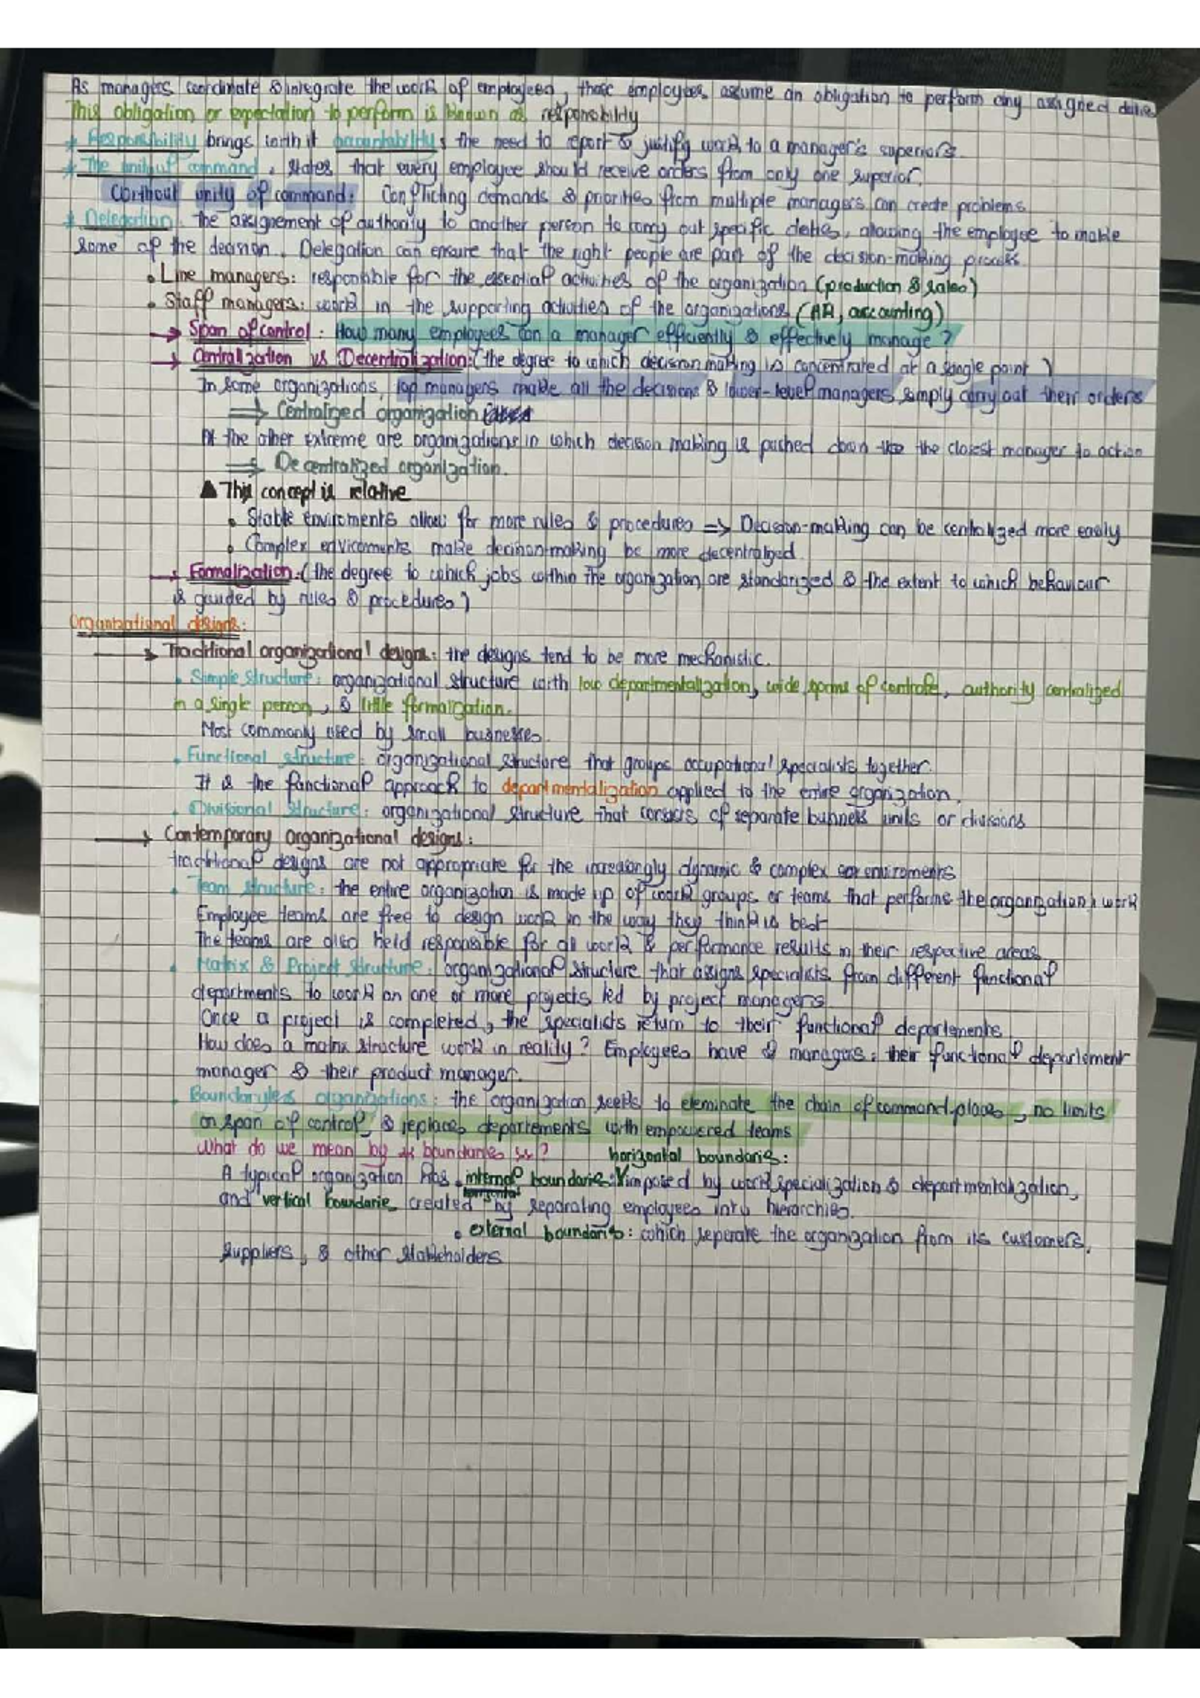 As managers coordinate & integrate the work of employees, those employees assume an obligation to perform any assigned duties
This obligation or expectation to perform is known as responsibility
* Responsibility brings with it accountability: the need to report & justify work to a manager's superiors.
* The unity of command, states that every employee should receive orders from only one superior.
Without unity of command: Conflicting demands & priorities from multiple managers can create problems
* Delegation: the assignement of authority to another person to carry out specific duties, allowing the employee to make
some of the decision. Delegation can ensure that the right people are part of the decision-making process.
• Line managers: responsible for the essential activities of the organization (production & sales)
• Staff managers: work in the supporting activities of the organizations (HR, accounting)
→ Span of control: How many employees can a manager efficiently & effectively manage?
→ Centralization vs Decentralization: (the degree to which decision making is concentrated at a single point)
In some organizations, top managers make all the decisions & lower-level managers simply carry out their orders
⇒ Centralized organization
At the other extreme are organizations in which decision making is pushed down to the closest manager to action
⇒ Decentralized organization.
▲ This concept is relative
• Stable enviroments allow for more rules & procedures ⇒ Decision-making can be centralized more easily
• Complex environments make decision-making be more decentralized
→ Formalization: (the degree to which jobs within the organization are standarized & the extent to which behaviour
is guided by rules & procedures)
Organizational designs:
→ Traditional organizational designs: the designs tend to be more mechanistic.
• Simple structure: organizational structure with low departmentalization, wide spans of control, authority centralized
in a single person, & little formalization.
Most commonly used by small businesses.
• Functional structure: organizational structure that groups occupational specialists together.
It is the functional approach to departmentalization applied to the entire organization.
• Divisional structure: organizational structure that consists of separate business units or divisions
→ Contemporary organizational designs:
traditional designs are not appropriate for the increasingly dynamic & complex enviroments
• Team structure: the entire organization is made up of work groups or teams that performs the organization's work
Employee teams are free to design work in the way they think is best
The teams are also held responsible for all work & performance results in their respective areas
• Matrix & Project structure: organizational structure that assigns specialists from different functional
departments to work on one or more projects led by project managers
Once a project is completed, the specialists return to their functional departements
How does a matrix structure work in reality? Employees have 2 managers: their functional departement
manager & their product manager.
• Boundaryless organizations: the organization seeks to eleminate the chain of command, places, no limits
on span of control, & replaces departements with empowered teams
What do we mean by boundaries? horizontal boundaries:
A typical organization has • internal boundaries: imposed by work specialization & departmentalization,
and vertical boundarie created by separating employees into hierarchies.
horizontal
• external boundaries: which seperate the organization from its customers,
suppliers, & other stakeholders